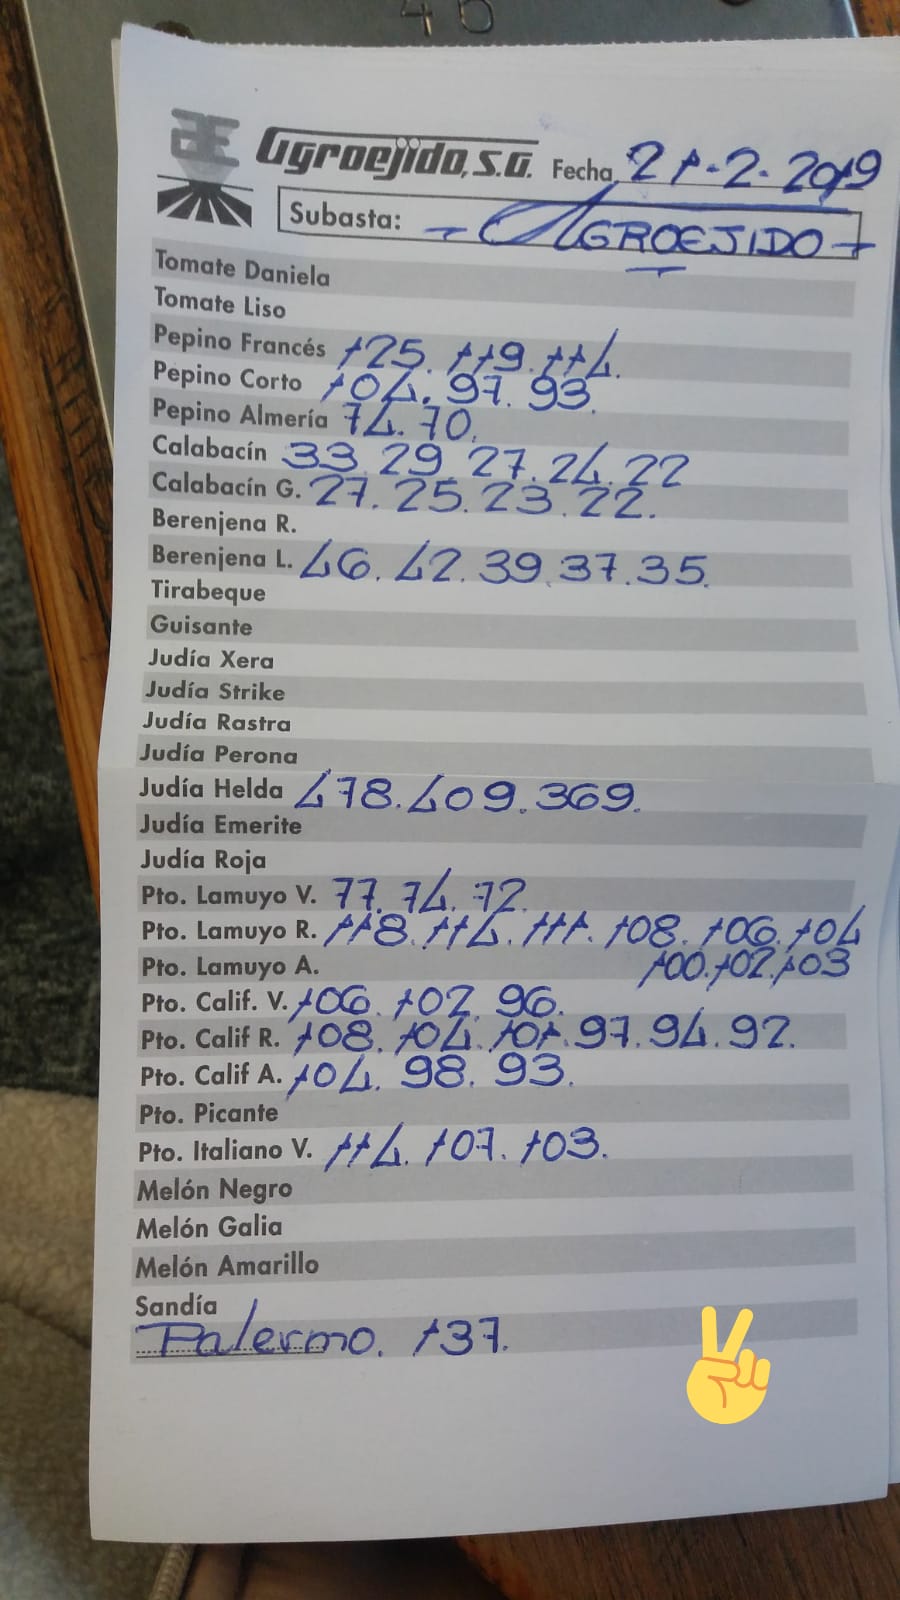 46
Agroejido, S.A. Fecha 21-2-2019
Subasta: - AGROEJIDO -
Tomate Daniela
Tomate Liso
Pepino Francés 125. 119. 114.
Pepino Corto 104. 97. 93.
Pepino Almería 74. 70.
Calabacín 33. 29. 27. 24. 22
Calabacín G. 27. 25. 23. 22.
Berenjena R.
Berenjena L. 46. 42. 39. 37. 35.
Tirabeque
Guisante
Judía Xera
Judía Strike
Judía Rastra
Judía Perona
Judía Helda 478. 409. 369.
Judía Emerite
Judía Roja
Pto. Lamuyo V. 77. 74. 72.
Pto. Lamuyo R. 118. 114. 111. 108. 106. 104
Pto. Lamuyo A. 100. 102. 103
Pto. Calif. V. 106. 102. 96.
Pto. Calif R. 108. 104. 101. 97. 94. 92.
Pto. Calif A. 104. 98. 93.
Pto. Picante
Pto. Italiano V. 114. 107. 103.
Melón Negro
Melón Galia
Melón Amarillo
Sandía
Palermo. 137.